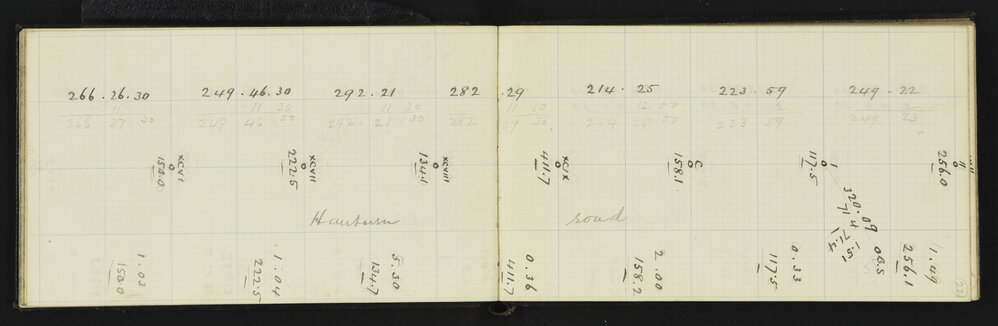 266.26.30 249.46.30 292.21 282.29 214.25 223.59 249.22
11 11 30 11 30 11 30 12 00 12 12
266 27 30 249 46 00 292. 21 30 282 29 30 214 25 00 223 59 249 23
XCVI XCVII XCVIII XCIX C I II
150.0 222.5 134.1 411.7 158.1 117.5 256.0
320.09
71.4
1.51
00.5
road
1.03 1:04 5.30 0.36 2.00 0.33 1.49
150.0 222.5 134.7 411.7 158.2 117.5 256.1
22